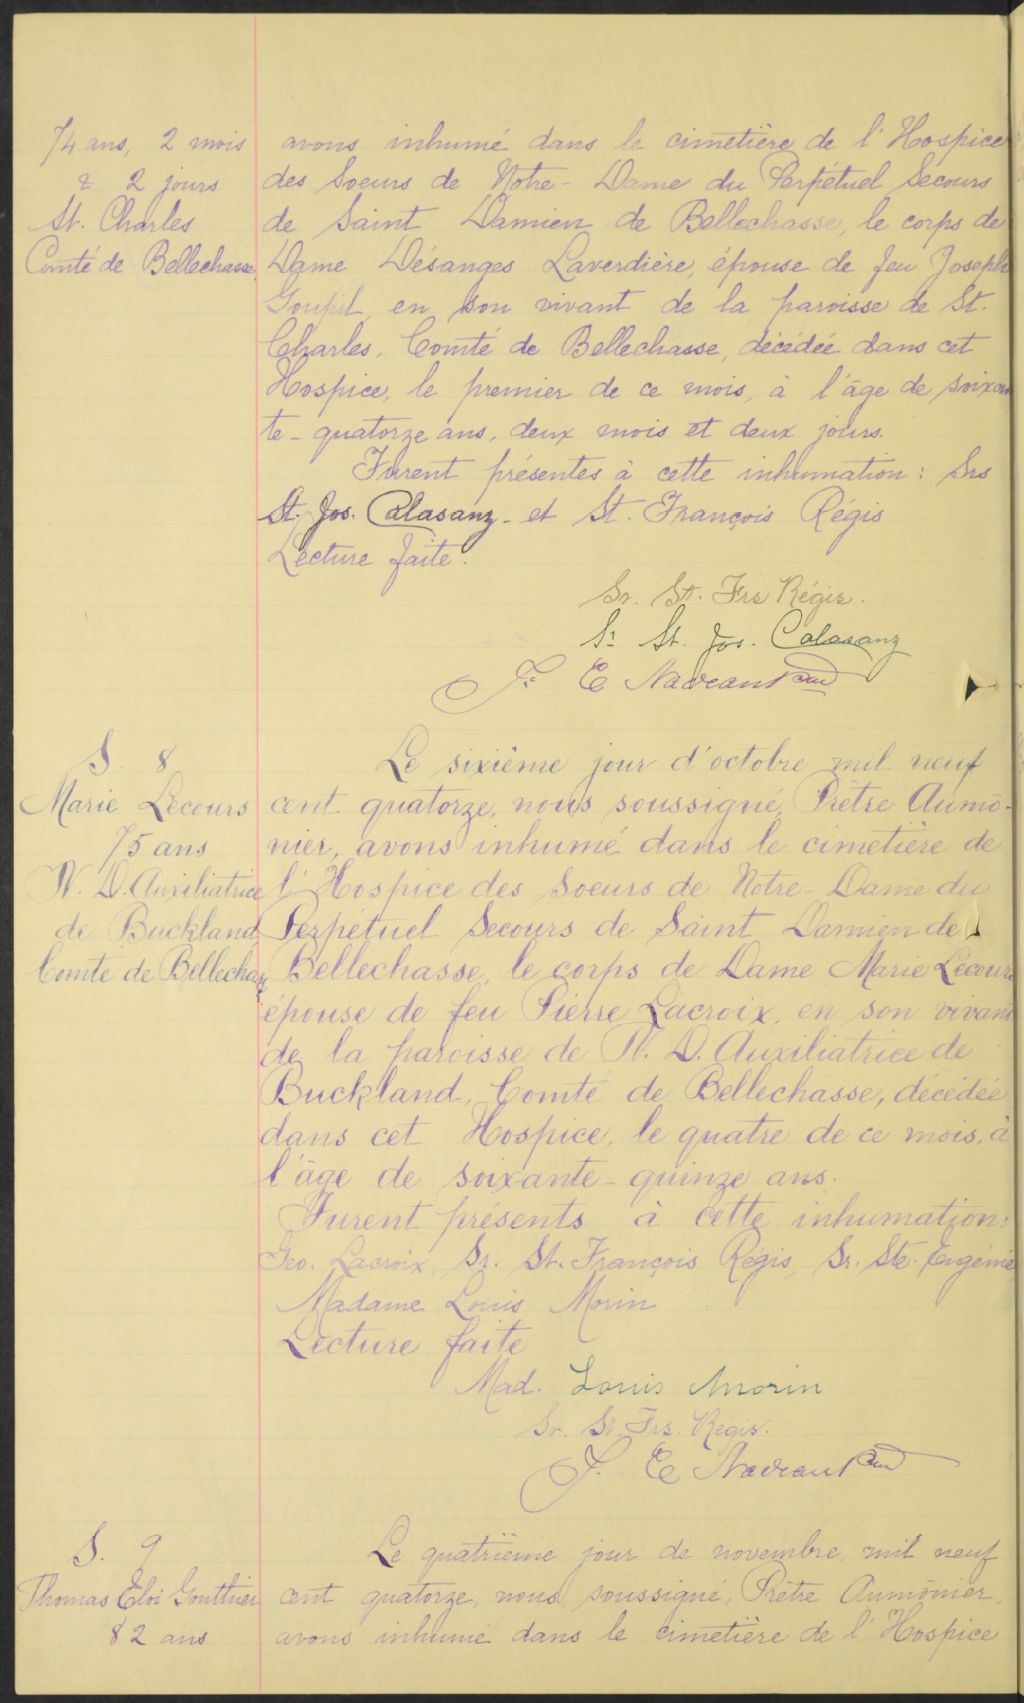 74 ans, 2 mois
& 2 jours
St. Charles
Comté de Bellechasse
avons inhumé dans le cimetière de l'Hospice
des Soeurs de Notre-Dame du Perpétuel Secours
de Saint Damien de Bellechasse, le corps de
Dame Désanges Laverdière, épouse de feu Joseph
Goupil, en son vivant de la paroisse de St.
Charles, Comté de Bellechasse, décédée dans cet
Hospice, le premier de ce mois, à l'âge de soixan
te-quatorze ans, deux mois et deux jours.
Furent présentes à cette inhumation : Srs
St. Jos. Calasanz et St. François Régis
Lecture faite.
Sr. St. Frs Régis.
Sr St. Jos. Calasanz
J. E. Nadeau
S. 8
Marie Lecours
75 ans
N. D. Auxiliatrice
de Buckland
Comté de Bellechasse
Le sixième jour d'octobre mil neuf
cent quatorze, nous soussigné, Prêtre Aumô-
nier, avons inhumé dans le cimetière de
l'Hospice des Soeurs de Notre-Dame du
Perpétuel Secours de Saint Damien de
Bellechasse, le corps de Dame Marie Lecours
épouse de feu Pierre Lacroix, en son vivant
de la paroisse de N. D. Auxiliatrice de
Buckland, Comté de Bellechasse, décédée
dans cet Hospice, le quatre de ce mois, à
l'âge de soixante-quinze ans.
Furent présents à cette inhumation:
Geo. Lacroix, Sr. St. François Régis, Sr. Ste. Eugénie
Madame Louis Morin
Lecture faite
Mad. Louis Morin
Sr. St. Frs. Régis.
J. E. Nadeau
S. 9
Thomas Eloi Gonthier
82 ans
Le quatrième jour de novembre mil neuf
cent quatorze, nous soussigné, Prêtre Aumônier,
avons inhumé dans le cimetière de l'Hospice